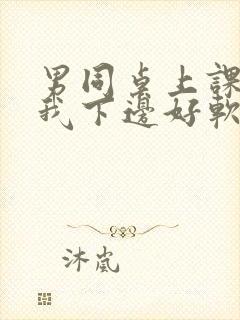 男同桌上課
我下邊好軟
沐嵐